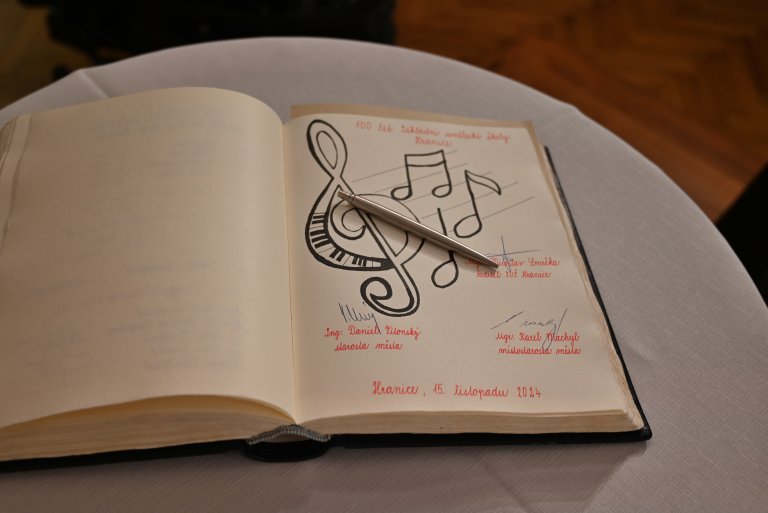 100 let Základní umělecké školy
Hranice
Mgr. Miroslav Smečka
ředitel ZUŠ Hranice
Ing. Daniel Vitonský
starosta města
Mgr. Karel Machyl
místostarosta města
Hranice, 15. listopadu 2024